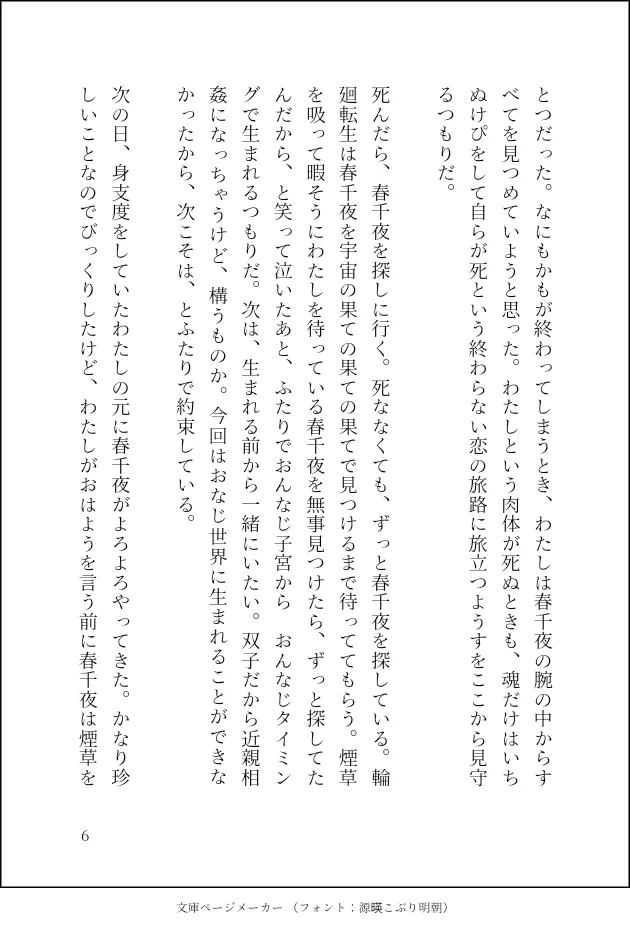 とつだった。なにもかもが終わってしまうとき、わたしは春千夜の腕の中からす
べてを見つめていようと思った。わたしという肉体が死ぬときも、魂だけはいち
ぬけぴをして自らが死という終わらない恋の旅路に旅立つようすをここから見守
るつもりだ。
死んだら、春千夜を探しに行く。死ななくても、ずっと春千夜を探している。輪
廻転生は春千夜を宇宙の果ての果ての果てで見つけるまで待っててもらう。煙草
を吸って暇そうにわたしを待っている春千夜を無事見つけたら、ずっと探してた
んだから、と笑って泣いたあと、ふたりでおんなじ子宮から　おんなじタイミン
グで生まれるつもりだ。次は、生まれる前から一緒にいたい。双子だから近親相
姦になっちゃうけど、構うものか。今回はおなじ世界に生まれることができな
かったから、次こそは、とふたりで約束している。
次の日、身支度をしていたわたしの元に春千夜がよろよろやってきた。かなり珍
しいことなのでびっくりしたけど、わたしがおはようを言う前に春千夜は煙草を
6
文庫ページメーカー（フォント：源暎こぶり明朝）